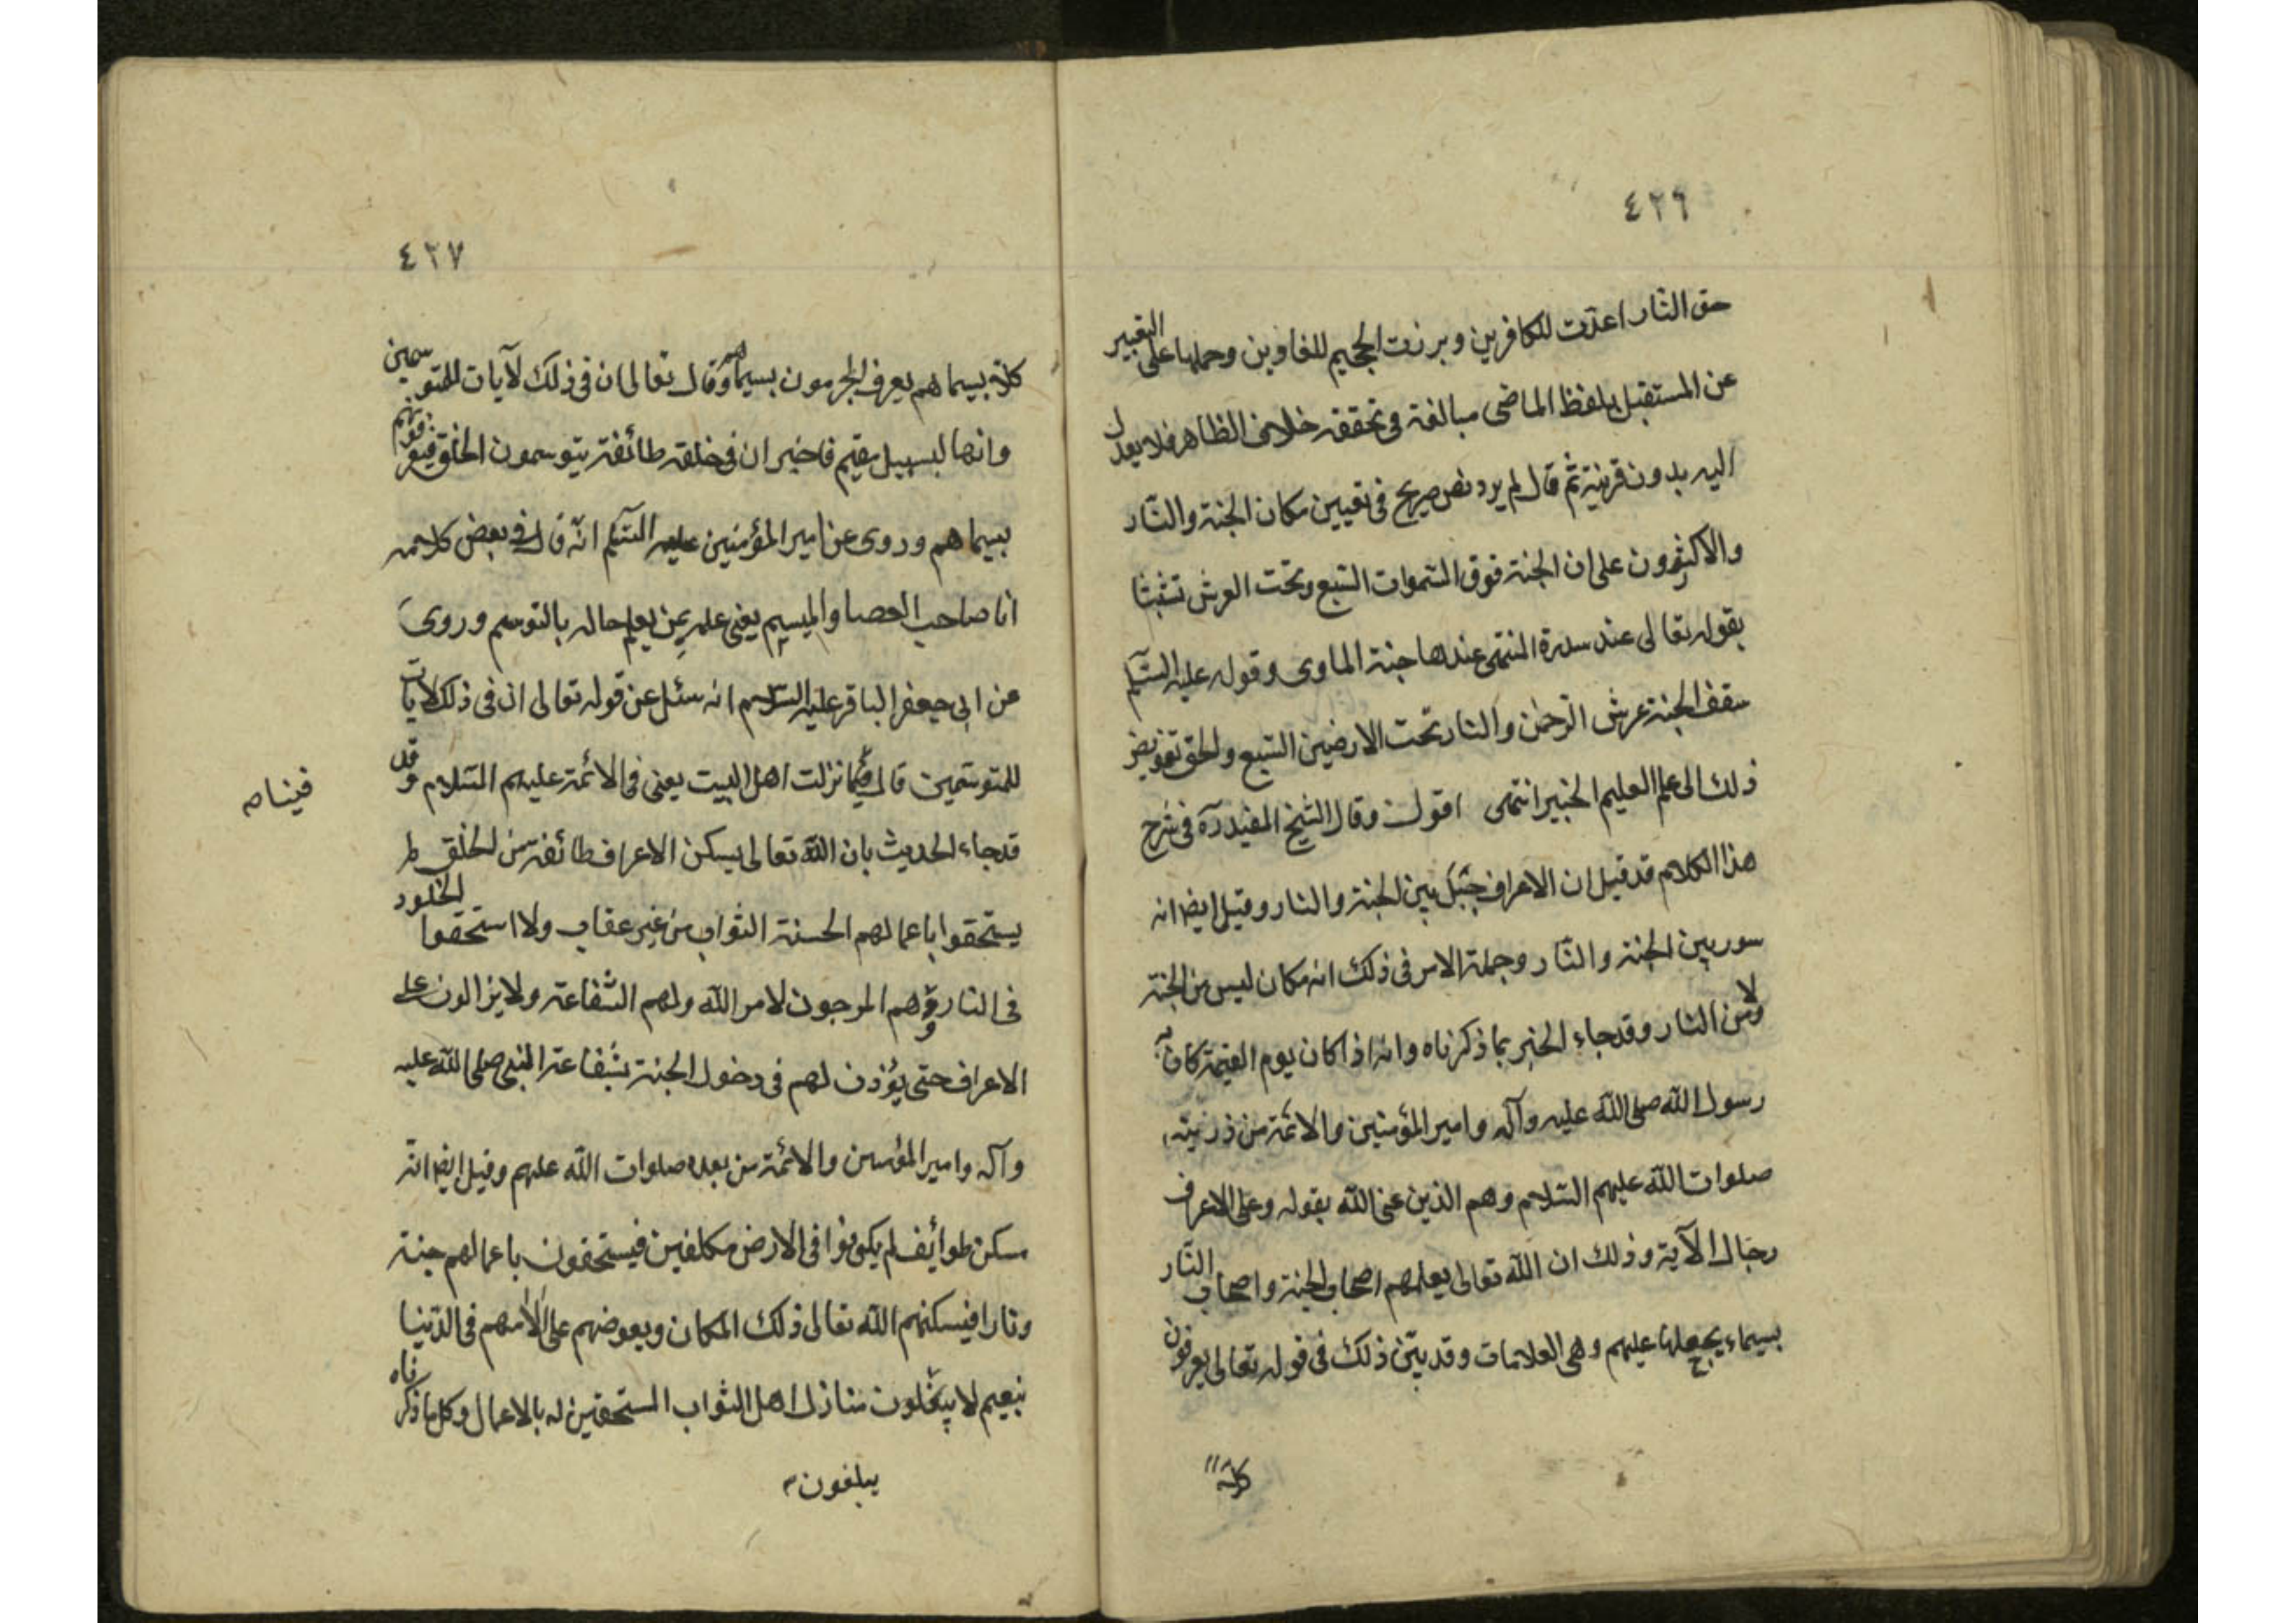 ٤٢٦
حق النار اعدّت للكافرين وبرزت الجحيم للغاوين وحملها على التعبير
عن المستقبل بلفظ الماضى مبالغة فى تحققه خلاف الظاهر فلا يعدل
اليه بدون قرينة ثم قال لم يرد نص صريح فى تعيين مكان الجنة والنّار
والاكثرون على ان الجنة فوق السّموات السّبع وتحت العرش تشبثا
بقوله تعالى عند سدرة المنتهى عندها جنة الماوى وقوله عليه السّلم
سقف الجنة عرش الرّحمن والنار تحت الارضين السّبع والحق تفويض
ذلك الى علم العليم الخبير انتهى اقول وقال الشّيخ المفيد ره فى شرح
هذا الكلام قد قيل ان الاعراف جبل بين الجنة والنار وقيل ايضا انه
سور بين الجنة والنّار وجملة الامر فى ذلك انه مكان ليس من الجنة
ولا من النار وقد جاء الخبر بما ذكرناه وانه اذا كان يوم القيمة كان به
رسول اللّه صلى اللّه عليه وآله وامير المؤمنين والائمّة من ذريته
صلوات اللّه عليهم السّلام وهم الذين عنى اللّه بقوله وعلى الاعراف
رجال الآية وذلك ان اللّه تعالى يعلمهم اصحاب الجنة واصحاب النّار
بسيماء يجعلها عليهم وهى العلامات وقد بيّن ذلك فى قوله تعالى يعرفون
كلا
٤٢٧
كلا بسيماهم يعرف المجرمون بسيماهم وقال تعالى ان فى ذلك لآيات للمتوسمين
وانها لبسبيل مقيم فاخبر ان فى خلقه طائفة يتوسمون الخلق فيعرفونهم
بسيماهم وروى عن امير المؤمنين عليه السّلم انّه قال فى بعض كلامه
انا صاحب العصا والميسم يعنى علمه بمن يعلم حاله بالتوسم وروى
عن ابى جعفر الباقر عليه السّلام انه سئل عن قوله تعالى ان فى ذلك لايات
للمتوسّمين قال فينا نزلت اهل البيت يعنى فى الائمة عليهم السّلام وقد
فينا ص
قد جاء الحديث بان اللّه تعالى يسكن الاعراف طائفة من الخلق لم
يستحقوا باعمالهم الحسنة الثواب من غير عقاب ولا استحقوا الخلود
فى النار وهم المرجون لامر اللّه ولهم الشّفاعة ولا يزالون على
الاعراف حتى يؤذن لهم فى دخول الجنة بشفاعة النبى صلى اللّه عليه
وآله وامير المؤمنين والائمّة من بعده صلوات اللّه عليهم وقيل ايضا انّه
مسكن طوائف لم يكونوا فى الارض مكلفين فيستحقون باعمالهم جنة
ونارا فيسكنهم اللّه تعالى ذلك المكان ويعوضهم على الآمهم فى الدّنيا
بنعيم لا يبلغون منازل اهل الثواب المستحقين له بالاعمال وكل ما ذكرناه
يبلغون